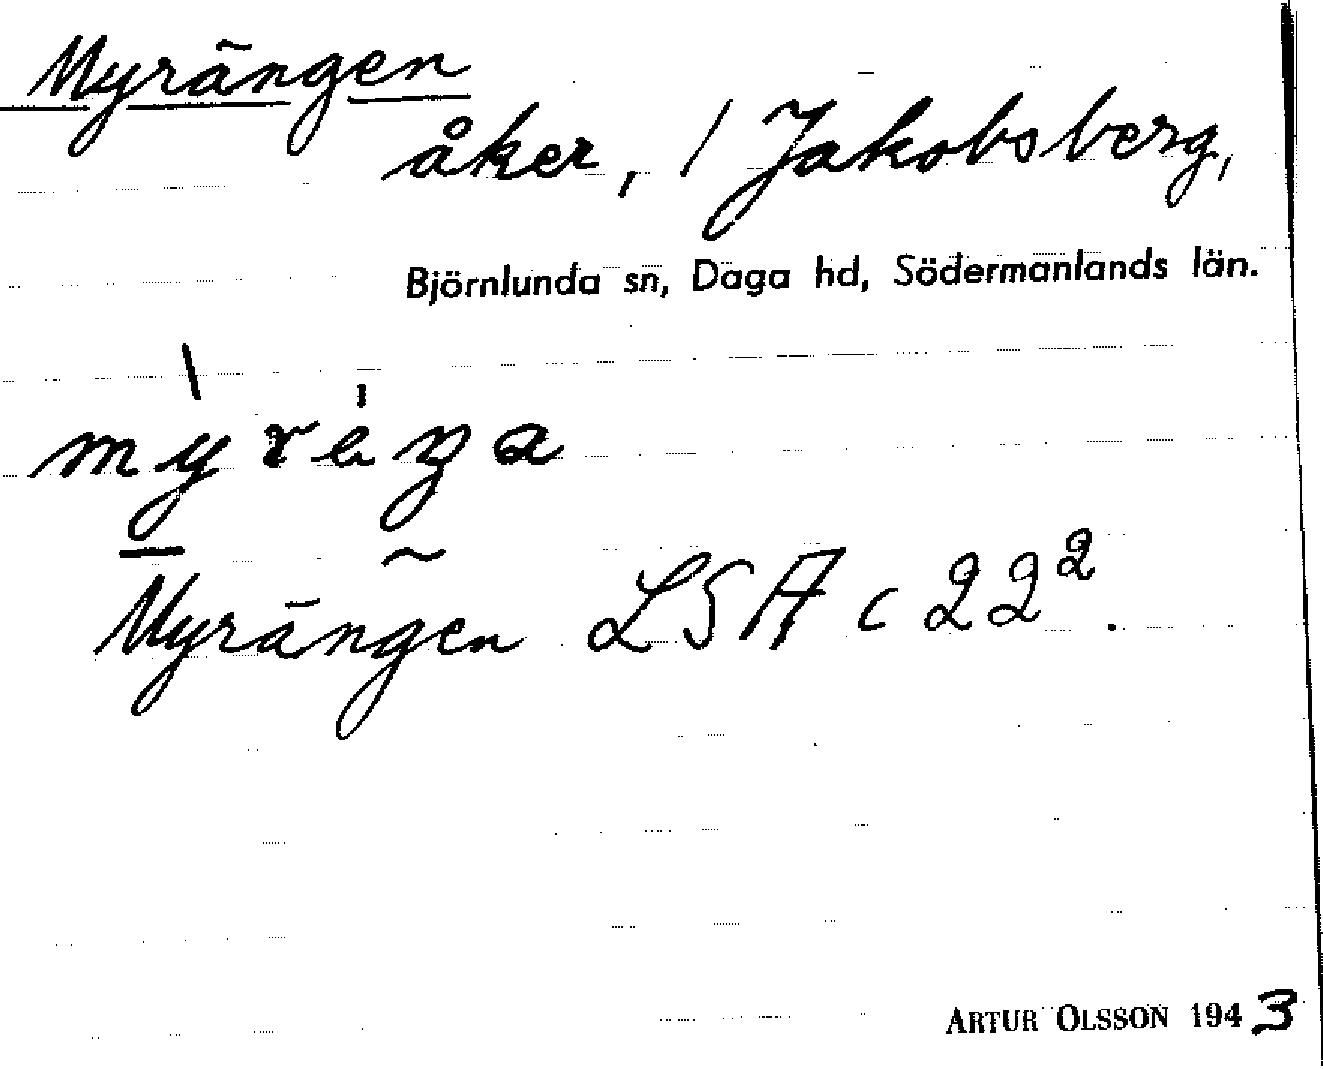 Myrängen
åker, / Jakobsberg,
Björnlunda sn, Daga hd, Södermanlands län.
Myrängen LSA C 22²
ARTUR OLSSON 1943